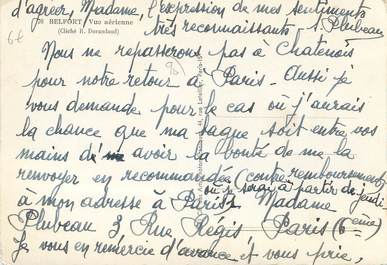 d'agréer, Madame, l'expression de mes sentiments
très reconnaissants. S. Plubeau
20 BELFORT / Vue aérienne
(Cliché R. Dorandaud)
6€
Nous ne repasserons pas à Chatenois
pour notre retour à Paris. Aussi je
vous demande pour le cas où j'aurais
la chance que ma bague soit entre vos
mains d'avoir la bonté de me la
renvoyer en recommandée (contre remboursement)
où je serai à partir de jeudi
à mon adresse à Paris : Madame
Plubeau 3, Rue Régis, Paris (6ème)
Je vous en remercie d'avance et vous prie,